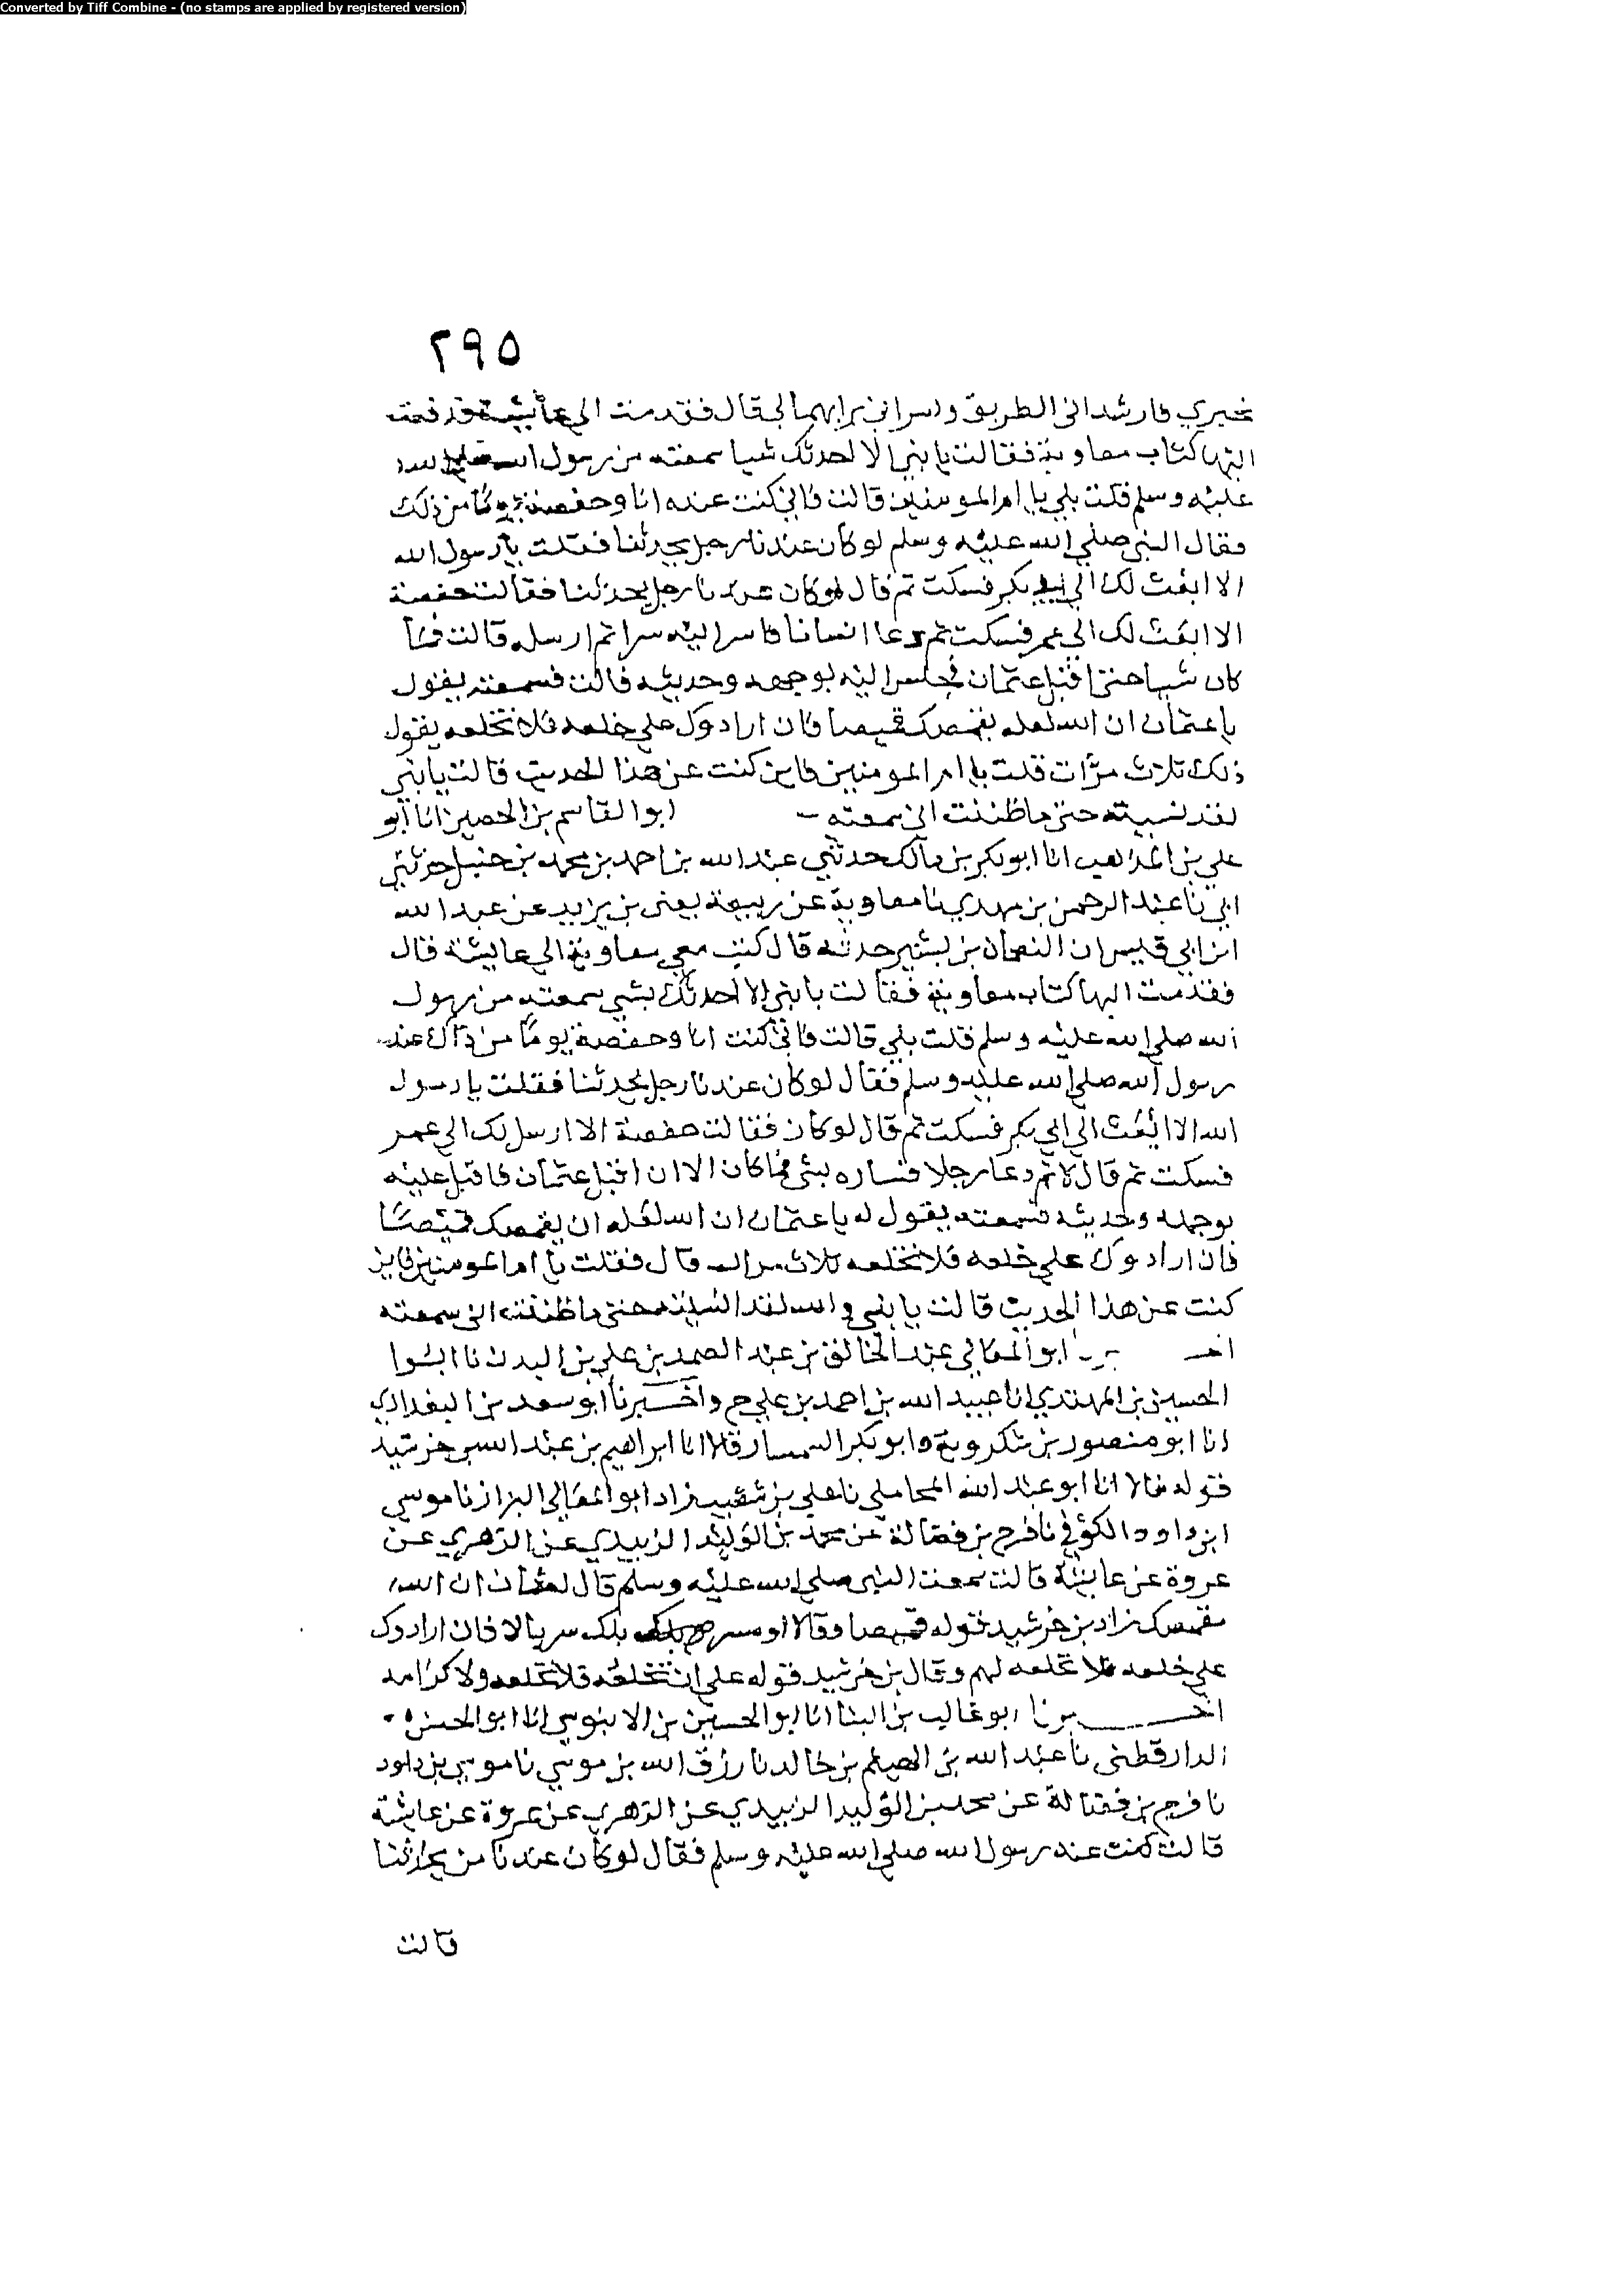 Converted by Tiff Combine - (no stamps are applied by registered version)
٢٩٥
خبري فارشداني الطريق واسراني برابهما لي قال فقدمت الي عايشة فدفعت
اليها كتاب معاوية فقالت يا بني الا احدثك شيا سمعته من رسول الله صلي الله
عليه وسلم قلت بلي يا ام المومنين قالت فاني كنت عنده انا وحفصة يوما من ذلك
فقال النبي صلي الله عليه وسلم لو كان عندنا رجل يحدثنا فقلت يا رسول الله
الا ابعث لك الي ابي بكر فسكت ثم قال لو كان عندنا رجل يحدثنا فقالت حفصة
الا ابعث لك الي عمر فسكت ثم دعا انسانا فاسر اليه سرا ثم ارسله قالت فما
كان شيا حتي اقبل عثمان فجلس اليه بوجهه وحديثه قالت فسمعته يقول
يا عثمان ان الله لعله يقمصك قميصا فان ارادوك علي خلعه فلا تخلعه يقول
ذلك ثلاث مرات قلت يا ام المومنين فاين كنت عن هذا الحديث قالت يا بني
لقد نسيته حتي ما ظننت اني سمعته ابو القاسم بن الحصين انا ابو
علي بن المذاهب انا ابو بكر بن مالك حدثني عبد الله بن احمد بن محمد بن حنبل حدثني
ابي نا عبد الرحمن بن مهدي نا معاوية عن ربيعة يعني بن يزيد عن عبد الله
ابن ابي قيس ان النعمان بن بشير حدثه قال كتب معي معاوية الي عايشة قال
فقدمت اليها كتاب معاوية فقالت يا بني الا احدثك بشي سمعته من رسول
الله صلي الله عليه وسلم قلت بلي قالت فاني كنت انا وحفصة يوما من ذاك عند
رسول الله صلي الله عليه وسلم فقال لو كان عندنا رجل يحدثنا فقلت يا رسول
الله الا ابعث الي ابي بكر فسكت ثم قال لو كان فقالت حفصة الا ارسل لك الي عمر
فسكت ثم قال لا ثم دعا رجلا فساره بشي فما كان الا ان اقبل عثمان فاقبل عليه
بوجهه وحديثه فسمعته يقول له يا عثمان ان الله لعله ان يقمصك قميصا
فان ارادوك علي خلعه فلا تخلعه ثلاث مرات قال فقلت يا ام المومنين فاين
كنت عن هذا الحديث قالت يا بني والله لقد انسيته حتي ما ظننت اني سمعته
ابو المعالي عبد الخالق بن عبد الصمد بن علي بن البدن نا ابو
الحسين بن المهتدي انا عبيد الله بن احمد بن علي ح واخبرنا ابو سعد بن البغدادي
انا ابو منصور بن شكروية وابو بكر السمسار قالا انا ابراهيم بن عبد الله بن خرشيد
قوله قالا انا ابو عبد الله المحاملي نا علي بن شعيب زاد ابو المعالي البزاز نا موسي
ابن داود الكوفي نا فرج بن فضالة عن محمد بن الوليد الزبيدي عن الزهري عن
عروة عن عايشة قالت سمعت النبي صلي الله عليه وسلم قال لعثمان ان الله
مقمصك زاد بن خرشيد قوله قميصا وقالا او سربالا فان ارادوك
علي خلعه فلا تخلعه لهم وقال بن خرشيد قوله علي ان تخلعه فلا تخلعه ولا كرامه
اخبرنا ابو غالب بن البنا انا ابو الحسين بن الابنوسي انا ابو الحسن
الدارقطني نا عبد الله بن الهيثم بن خالد نا رزق الله بن موسي نا موسي بن داود
نا فرج بن فضالة عن محمد بن الوليد الزبيدي عن الزهري عن عروة عن عايشة
قالت كنت عند رسول الله صلي الله عليه وسلم فقال لو كان عندنا من يحدثنا
قالت